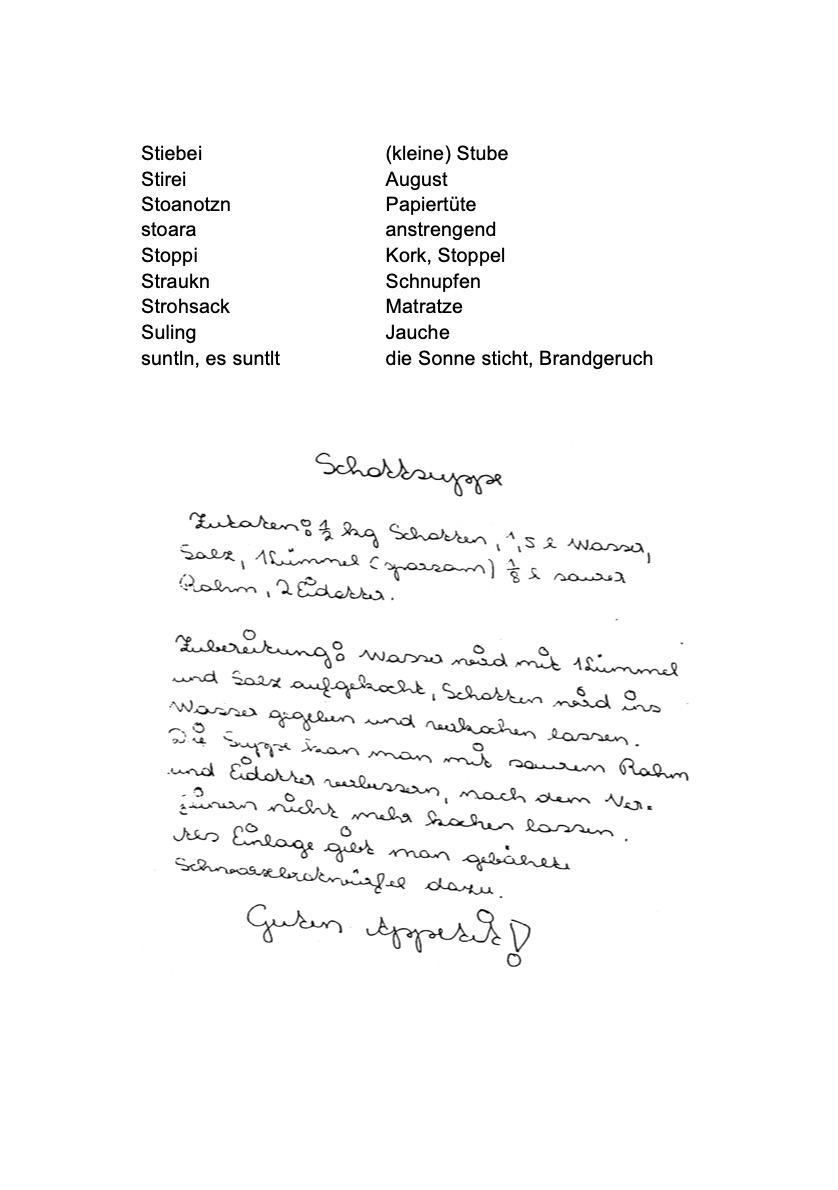 Stiebei (kleine) Stube
Stirei August
Stoanotzn Papiertüte
stoara anstrengend
Stoppi Kork, Stoppel
Straukn Schnupfen
Strohsack Matratze
Suling Jauche
suntln, es suntlt die Sonne sticht, Brandgeruch
Schottsuppe
Zutaten: 1/2 kg Schotten, 1,5 l Wasser,
Salz, Kümmel (sparsam) 1/8 l saurer
Rahm, 2 Eidotter.
Zubereitung: Wasser wird mit Kümmel
und Salz aufgekocht, Schotten wird ins
Wasser gegeben und verkochen lassen.
Die Suppe kan man mit saurem Rahm
und Eidotter verbessern, nach dem Ver=
nicht mehr kochen lassen.
Als Einlage gibt man gebähte
Schwarzbrotwürfel dazu.
Guten Appetit!